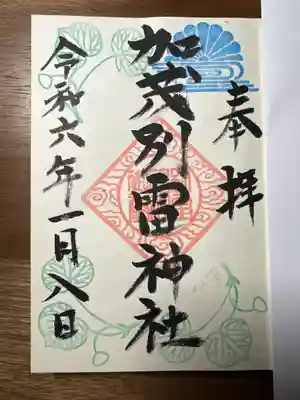 奉拝
加茂別雷神社
令和六年一月八日